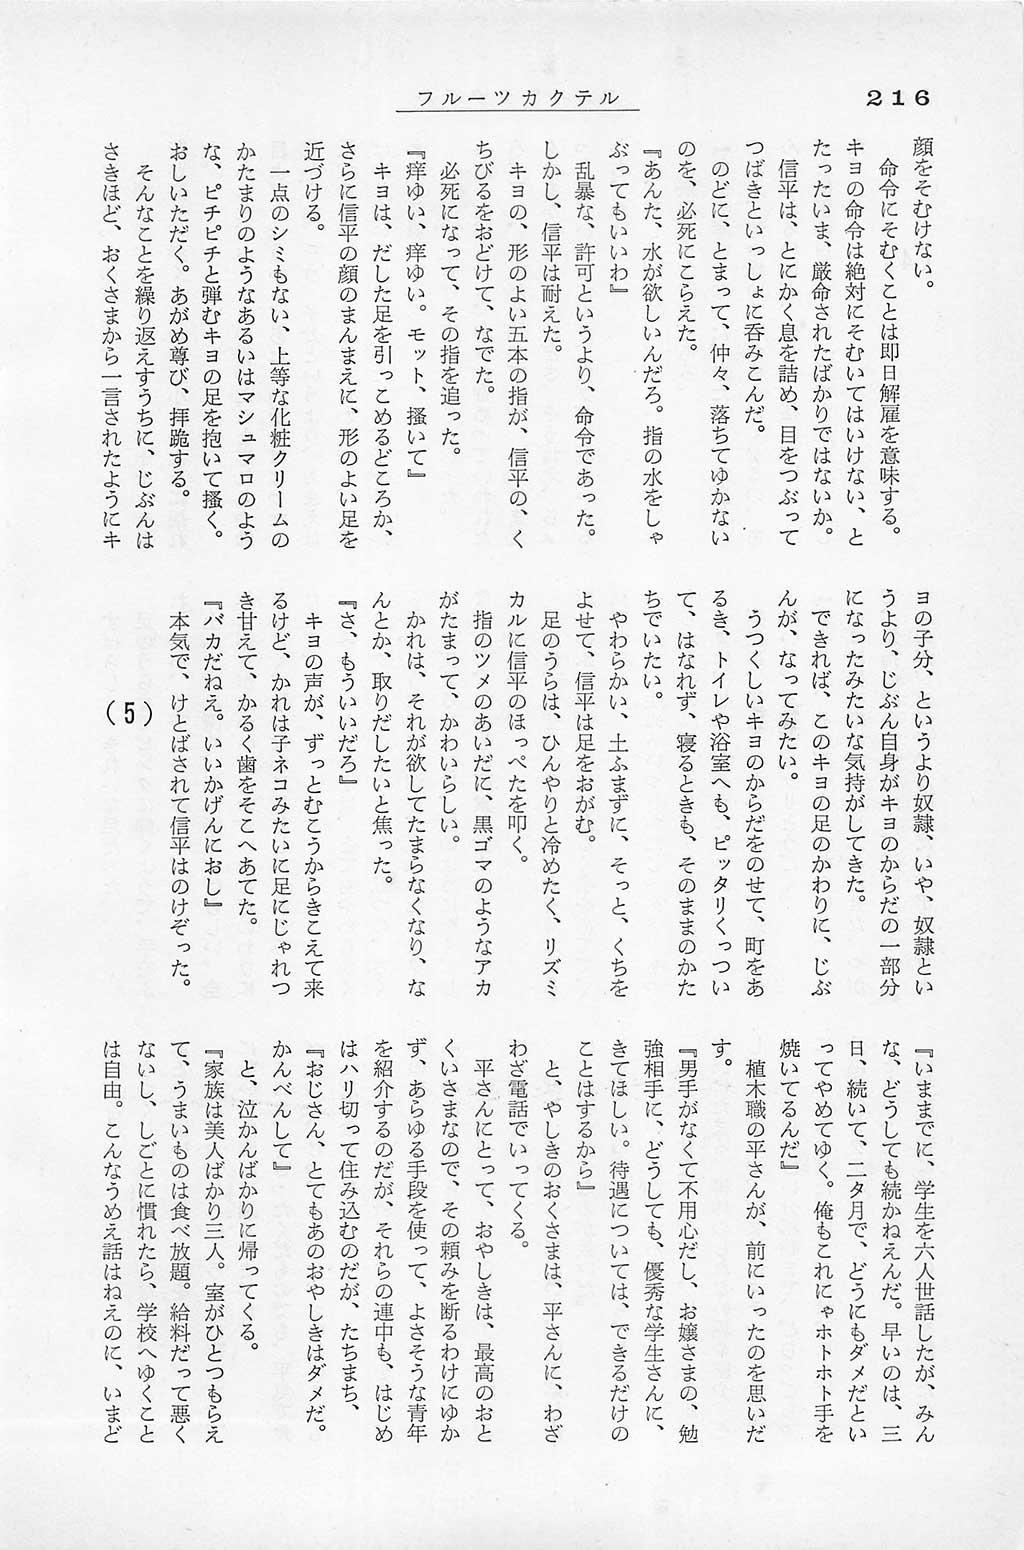 216
フルーツカクテル
顔をそむけない。
命令にそむくことは即日解雇を意味する。
キヨの命令は絶対にそむいてはいけない、と
たったいま、厳命されたばかりではないか。
信平は、とにかく息を詰め、目をつぶって
つばきといっしょに呑みこんだ。
のどに、とまって、仲々、落ちてゆかない
のを、必死にこらえた。
『あんた、水が欲しいんだろ。指の水をしゃ
ぶってもいいわ』
乱暴な、許可というより、命令であった。
しかし、信平は耐えた。
キヨの、形のよい五本の指が、信平の、く
ちびるをおどけて、なでた。
必死になって、その指を追った。
『痒ゆい、痒ゆい。モット、搔いて』
キヨは、だした足を引っこめるどころか、
さらに信平の顔のまんまえに、形のよい足を
近づける。
一点のシミもない、上等な化粧クリームの
かたまりのようなあるいはマシュマロのよう
な、ピチピチと弾むキヨの足を抱いて搔く。
おしいただく。あがめ尊び、拝跪する。
そんなことを繰り返えすうちに、じぶんは
さきほど、おくさまから一言されたようにキ
ヨの子分、というより奴隷、いや、奴隷とい
うより、じぶん自身がキヨのからだの一部分
になったみたいな気持がしてきた。
できれば、このキヨの足のかわりに、じぶ
んが、なってみたい。
うつくしいキヨのからだをのせて、町をあ
るき、トイレや浴室へも、ピッタリくっつい
て、はなれず、寝るときも、そのままのかた
ちでいたい。
やわらかい、土ふまずに、そっと、くちを
よせて、信平は足をおがむ。
足のうらは、ひんやりと冷めたく、リズミ
カルに信平のほっぺたを叩く。
指のツメのあいだに、黒ゴマのようなアカ
がたまって、かわいらしい。
かれは、それが欲してたまらなくなり、な
んとか、取りだしたいと焦った。
『さ、もういいだろ』
キヨの声が、ずっとむこうからきこえて来
るけど、かれは子ネコみたいに足にじゃれつ
き甘えて、かるく歯をそこへあてた。
『バカだねえ。いいかげんにおし』
本気で、けとばされて信平はのけぞった。
(5)
『いままでに、学生を六人世話したが、みん
な、どうしても続かねえんだ。早いのは、三
日、続いて、二タ月で、どうにもダメだとい
ってやめてゆく。俺もこれにゃホトホト手を
焼いてるんだ』
植木職の平さんが、前にいったのを思いだ
す。
『男手がなくて不用心だし、お嬢さまの、勉
強相手に、どうしても、優秀な学生さんに、
きてほしい。待遇については、できるだけの
ことはするから』
と、やしきのおくさまは、平さんに、わざ
わざ電話でいってくる。
平さんにとって、おやしきは、最高のおと
くいさまなので、その頼みを断るわけにゆか
ず、あらゆる手段を使って、よさそうな青年
を紹介するのだが、それらの連中も、はじめ
はハリ切って住み込むのだが、たちまち、
『おじさん、とてもあのおやしきはダメだ。
かんべんして』
と、泣かんばかりに帰ってくる。
『家族は美人ばかり三人。室がひとつもらえ
て、うまいものは食べ放題。給料だって悪く
ないし、しごとに慣れたら、学校へゆくこと
は自由。こんなうめえ話はねえのに、いまど